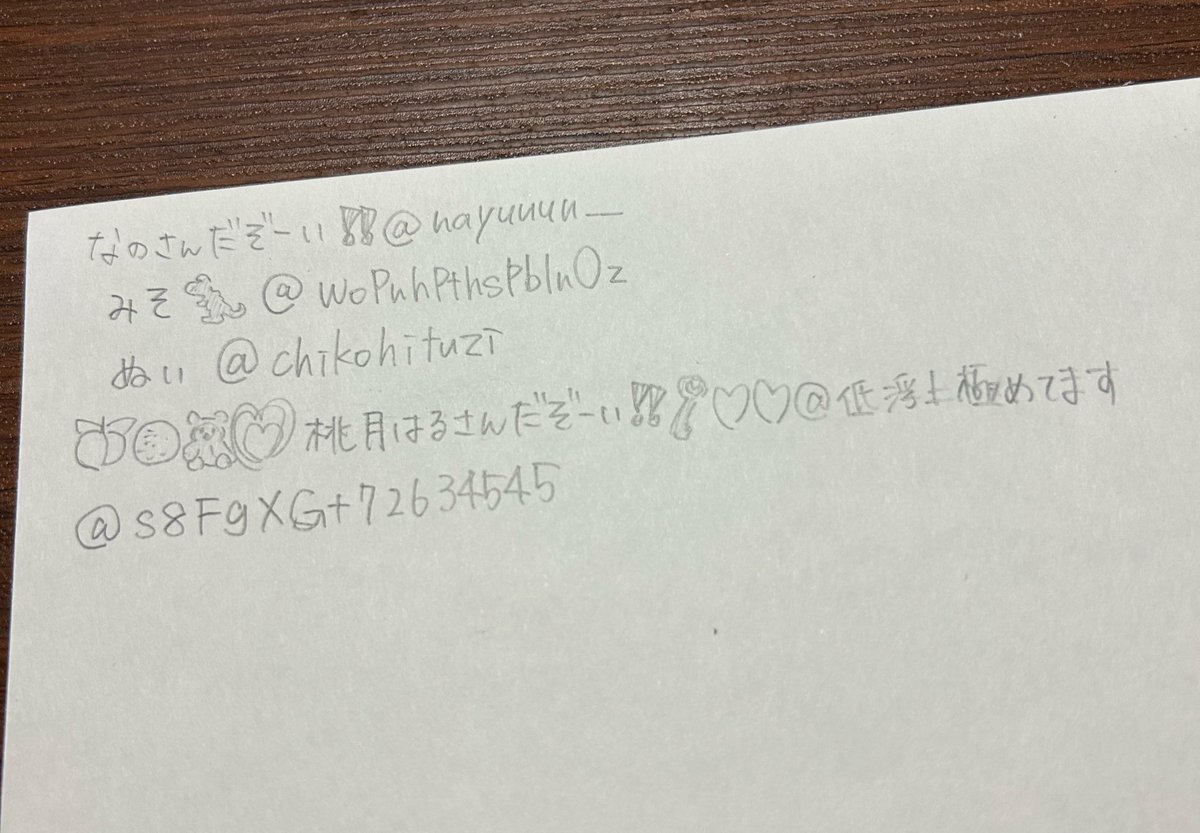 なのさんだぞーい‼@nayuuuu__
みそ @WoPuhPthsPblnOz
ぬい @chikohituzi
桃月はるさんだぞーい‼♡♡@低浮上極めてます
@s8FgXGt72634545